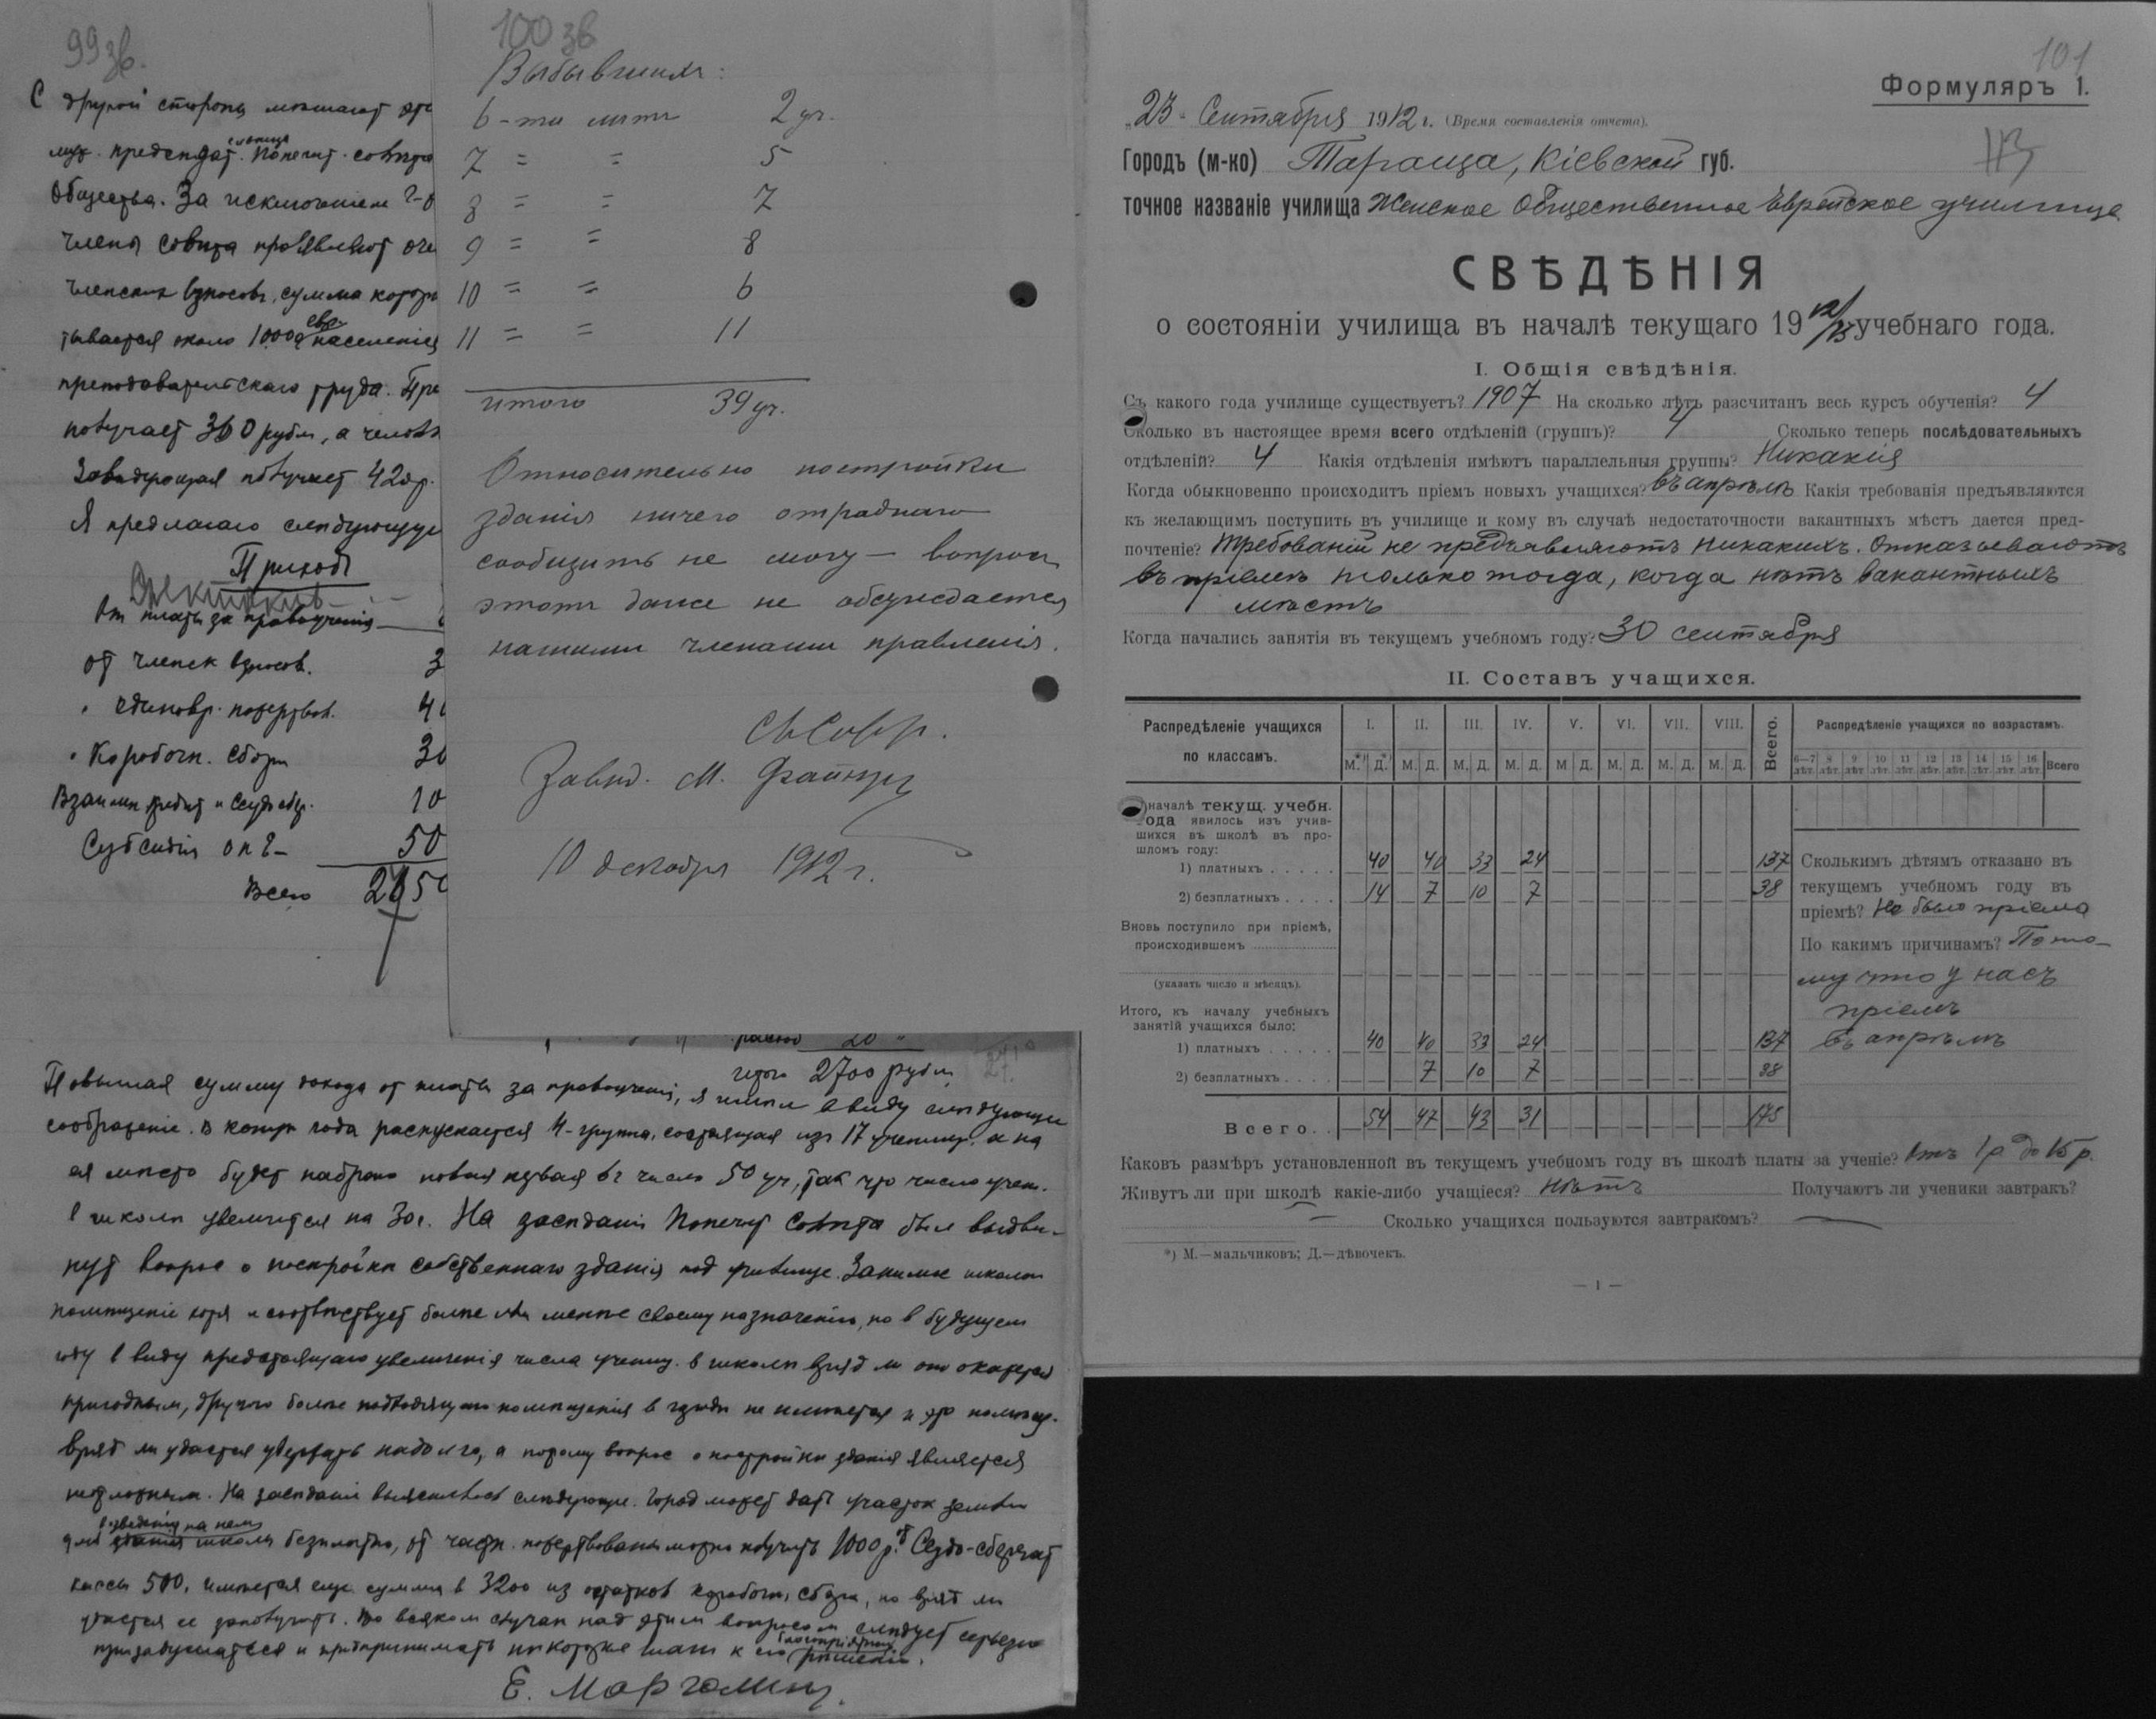 99 зв.
С другой стороны
предсѣдат. попечит. совѣта
Общества. За исключеніем
члены совѣта проявляют
членских взносов, сумма
тывается около 10000 евр. населенія
преподавательскаго труда.
получает 360 рубл., а
Завѣдующая получает 420 р.
Я предлагаю слѣдующую
Приход
От платы за правоученія
от членск взносов. 3
" единовр. пожертвов. 4
" Коробочн. сбора 30
10
Субсидія О П Е – 50
Всего
100 зв
Выбывших:
6-ти лѣтъ 2 уч.
7 = = 5
8 = = 7
9 = = 8
10 = = 6
11 = = 11
итого 39 уч.
Относительно постройки
зданія ничего отраднаго
сообщить не могу — вопросъ
этотъ даже не обсуждается
нашими членами правленія.
Завѣд. М.
10 декабря 1912 г.
20 "
итого 2700 рубл.
Повышая сумму дохода от платы за правоученія, я имѣл в виду слѣдующее
соображеніе. В концѣ года распускается 4-группа, состоящая из 17 учениц. а на
ея мѣсто будет набрана новая первая в числѣ 50 уч, так что число учен.
в школѣ увеличится на 30. На засѣданіи Попечит Совѣта был выдви-
нут вопрос о постройкѣ собственнаго зданія под училище. Занимае школой
помѣщеніе хотя и соотвѣтствует болѣе или менѣе своему назначенію, но в будущем
году в виду предстоящаго увеличенія числа учениц. в школѣ вряд ли оно окажется
пригодным, другого болѣе подходящаго помѣщенія в городѣ не имѣется и это помѣщ.
вряд ли удастся удержать надолго, а потому вопрос о постройкѣ зданія является
неотложным. На засѣданіи выяснилось слѣдующее. Город может дать участок земли
для возведенія на нем зданія школы безплатно, от частн. пожертвованія можно получить 1000 р. от Ссудо-сберегат
кассы 500, имѣется еще сумма в 3200 из остатков коробочн. сбора, но вряд ли
удастся ее заполучить. Во всяком случаѣ над этим вопросом слѣдует серьезно
призадуматься и предпринимать нѣкоторые шаги к его благопріятному рѣшенію.
Е. Марголинъ.
101
Формуляръ 1.
„23" Сентября 1912 г. (Время составленія отчета).
Городъ (м-ко) Тараща, Кіевской губ.
точное названіе училища Женское Общественное Еврейское училище
СВѢДѢНІЯ
о состояніи училища въ началѣ текущаго 1912/13 учебнаго года.
I. Общія свѣдѣнія.
Съ какого года училище существуетъ? 1907 На сколько лѣтъ разсчитанъ весь курсъ обученія? 4
Сколько въ настоящее время всего отдѣленій (группъ)? 4 Сколько теперь послѣдовательныхъ
отдѣленій? 4 Какія отдѣленія имѣютъ параллельныя группы? Никакія
Когда обыкновенно происходитъ пріемъ новыхъ учащихся? въ апрѣлѣ Какія требованія предъявляются
къ желающимъ поступить въ училище и кому въ случаѣ недостаточности вакантныхъ мѣстъ дается пред-
почтеніе? Требованій не предъявляютъ никакихъ. Отказываютъ
въ пріемѣ только тогда, когда нѣтъ вакантныхъ
мѣстъ
Когда начались занятія въ текущемъ учебномъ году? 30 сентября
II. Составъ учащихся.
Распредѣленіе учащихся по классамъ. I. II. III. IV. V. VI. VII. VIII. Всего. Распредѣленіе учащихся по возрастамъ.
М.*) Д.*) М. Д. М. Д. М. Д. М Д. М. Д. М. Д. М. Д. 6—7 лѣт. 8 лѣт. 9 лѣт. 10 лѣт. 11 лѣт. 12 лѣт. 13 лѣт. 14 лѣт. 15 лѣт. 16 лѣт. Всего
началѣ текущ. учебн.
ода явилось изъ учив-
шихся въ школѣ въ про-
шломъ году:
1) платныхъ . . . . . 40 40 33 24 137
2) безплатныхъ . . . . 14 7 10 7 38
Вновь поступило при пріемѣ,
происходившемъ
(указать число и мѣсяцъ).
Итого, къ началу учебныхъ
занятій учащихся было:
1) платныхъ . . . . . 40 40 33 24 137
2) безплатныхъ . . . . 7 10 7 38
Всего. . 54 47 43 31 175
Сколькимъ дѣтямъ отказано въ
текущемъ учебномъ году въ
пріемѣ? Не было пріема
По какимъ причинамъ? Пото-
му что у насъ
пріемъ
въ апрѣлѣ
Каковъ размѣръ установленной въ текущемъ учебномъ году въ школѣ платы за ученіе? Отъ 1 р до 15 р.
Живутъ ли при школѣ какіе-либо учащіеся? нѣтъ Получаютъ ли ученики завтракъ?
— Сколько учащихся пользуются завтракомъ? —
*) М.—мальчиковъ; Д.—дѣвочекъ.
— 1 —